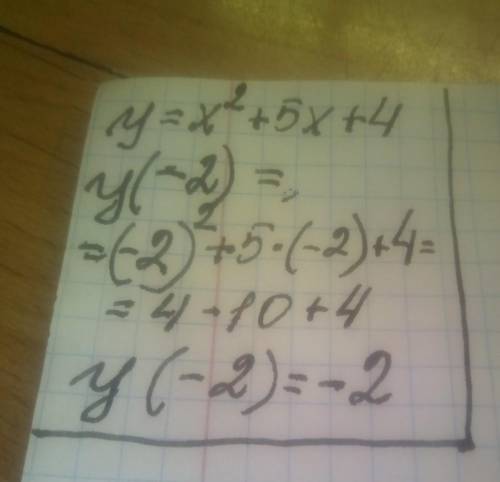 y = x² + 5x + 4
y(-2) =
= (-2)² + 5 · (-2) + 4 =
= 4 - 10 + 4
y(-2) = -2